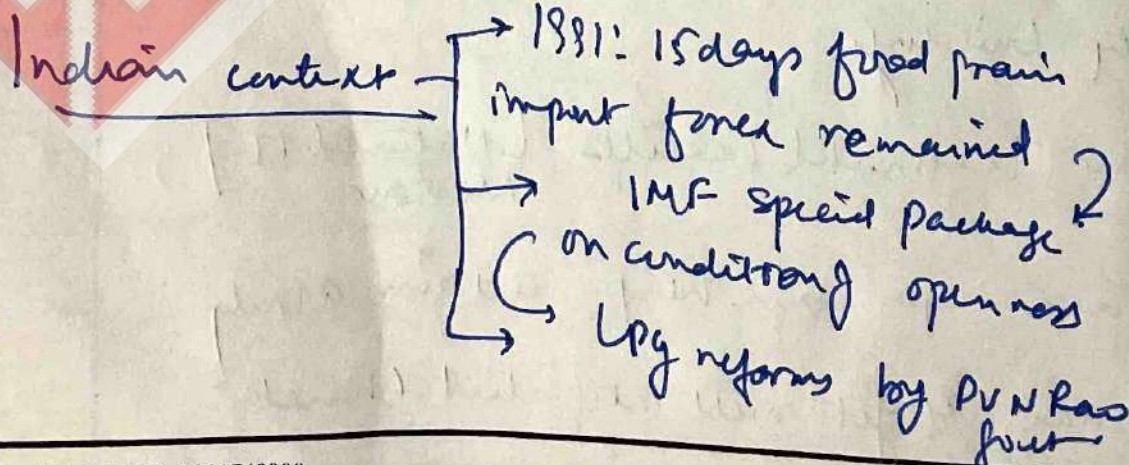 Indian context
1991: 15 days food grain
import forex remained
IMF special package
on condition of openness
LPG reforms by PVN Rao
Govt